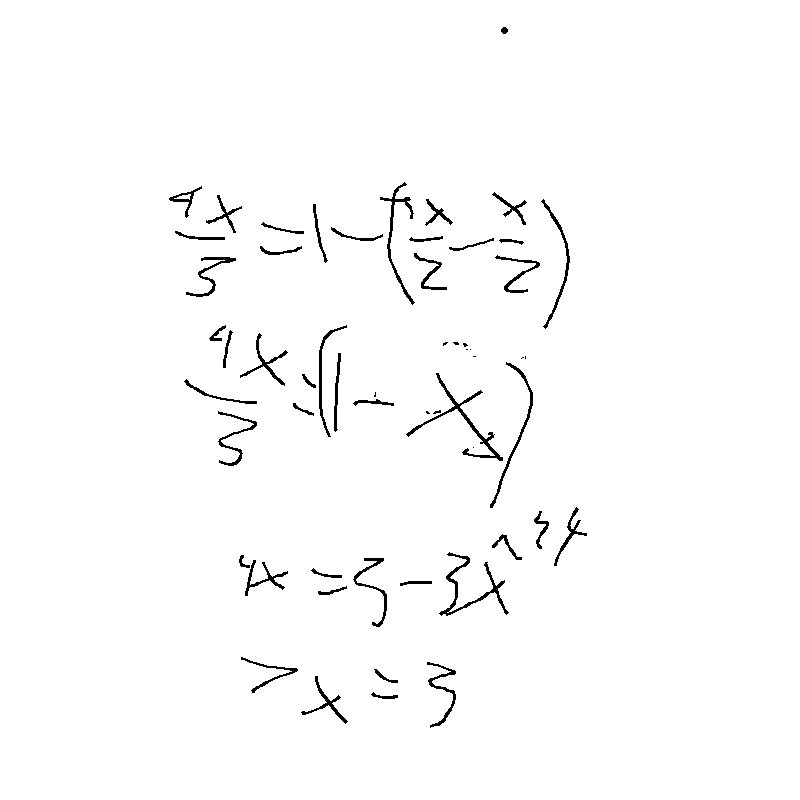 4x/3 = 1 - (x/2 - x/2)
4x/3 = (1 - x)
4x = 3 - 3x
7x = 3